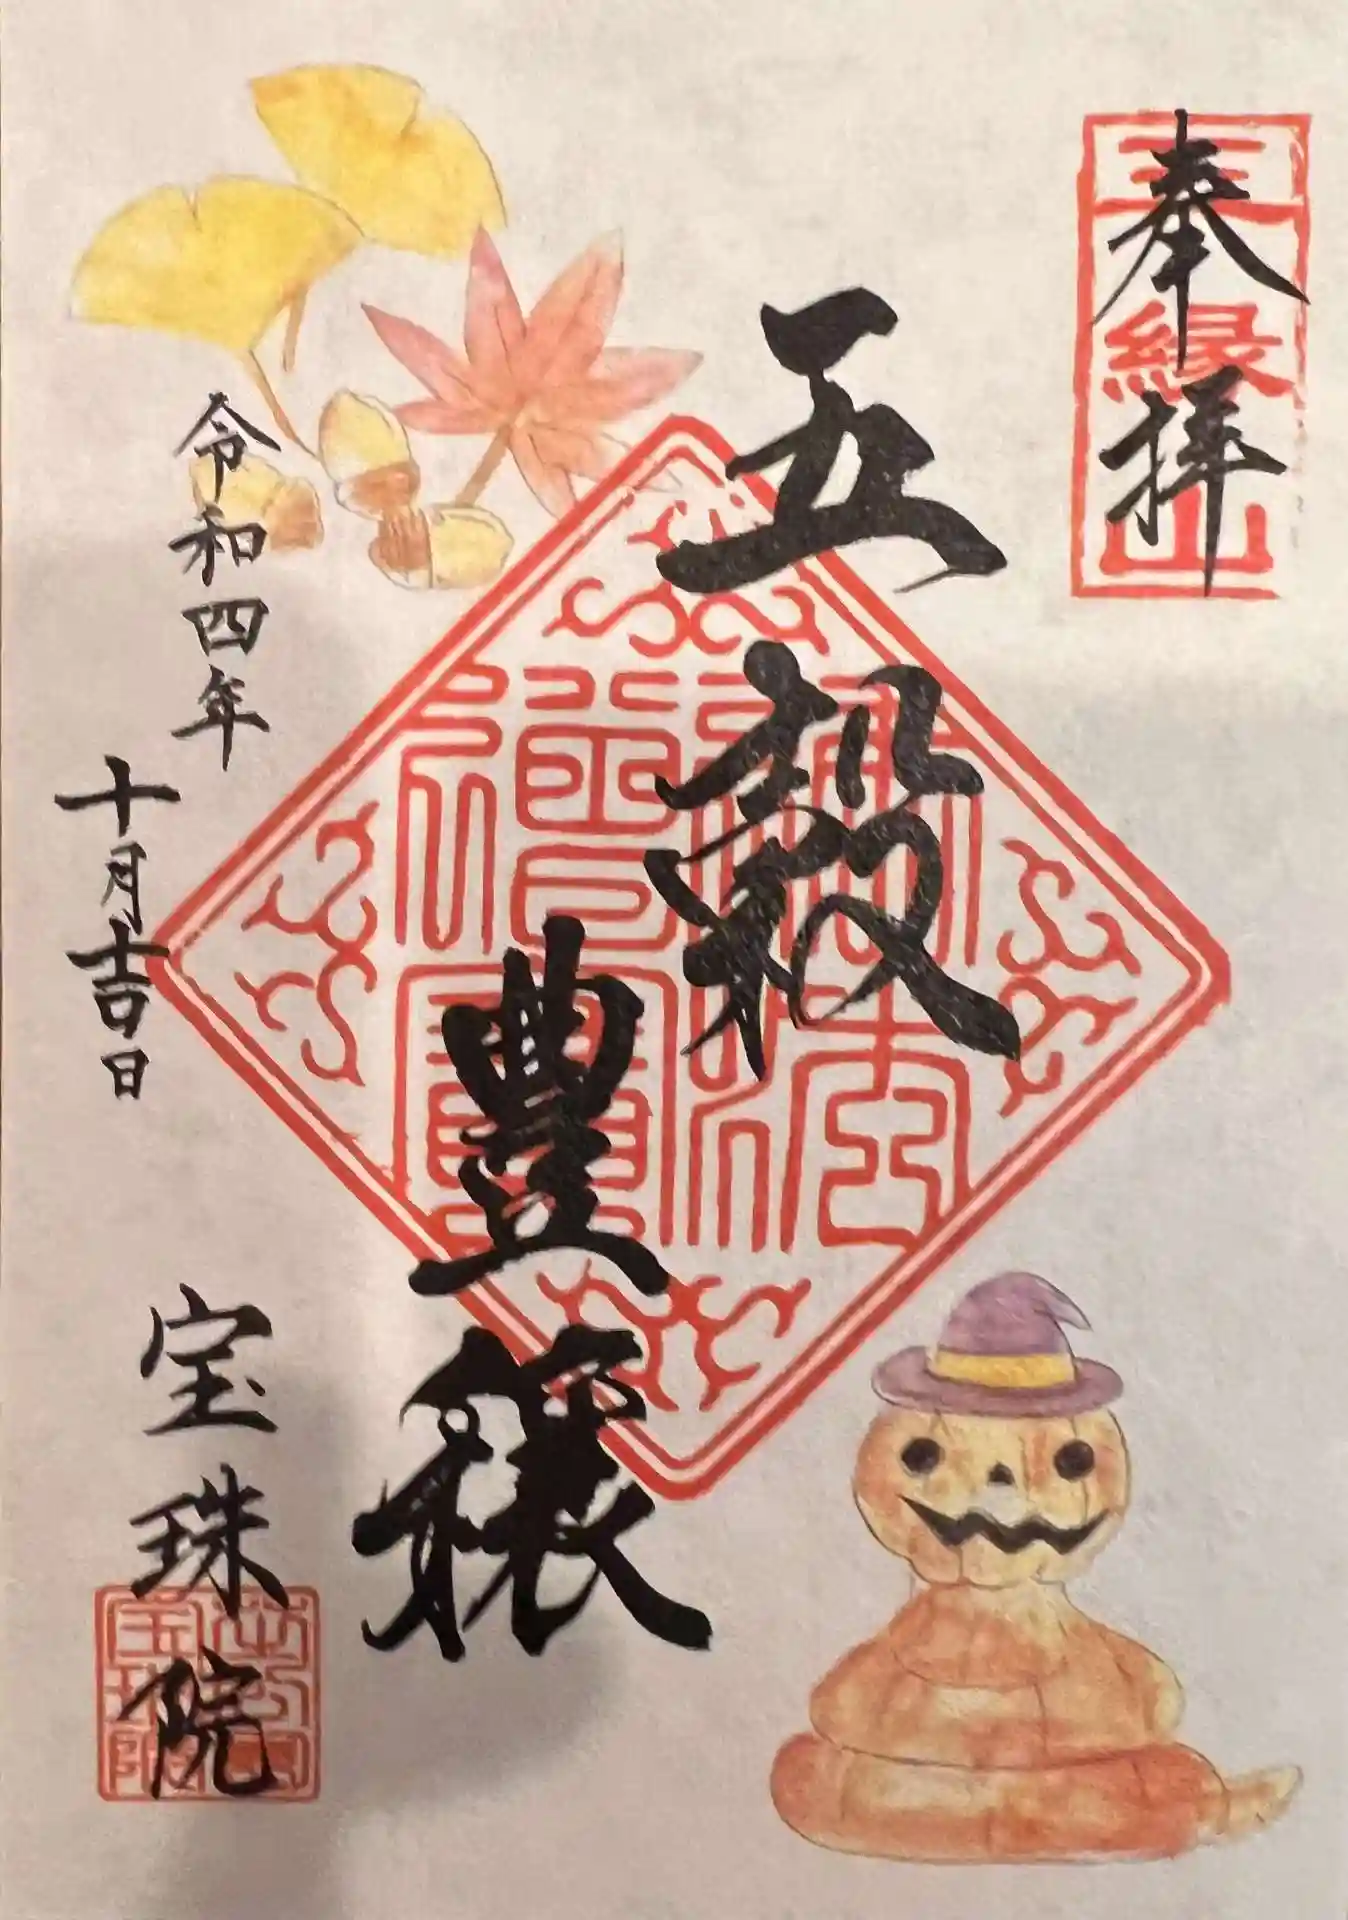 奉拝
三縁山
五穀
豊穣
令和四年
十月吉日
宝珠院